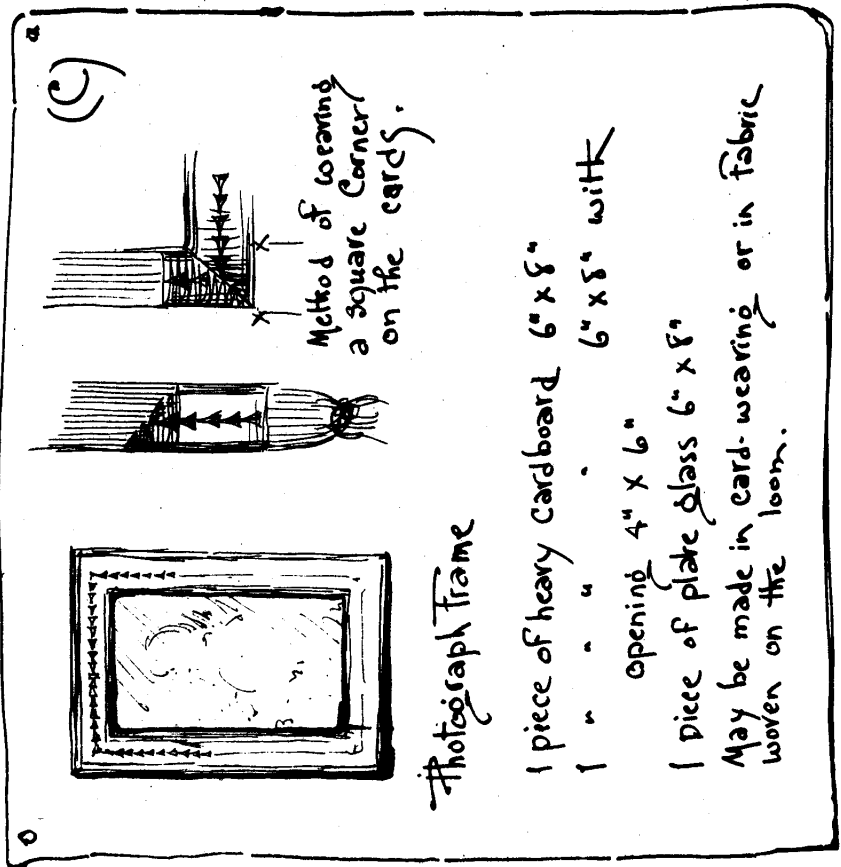 (C)
Method of weaving
a square Corner
on the cards.
X
X
Photograph Frame
1 piece of heavy cardboard 6" x 8"
1 " " " " 6" x 8" with
opening 4" x 6"
1 piece of plate glass 6" x 8"
May be made in card-weaving or in fabric
woven on the loom.